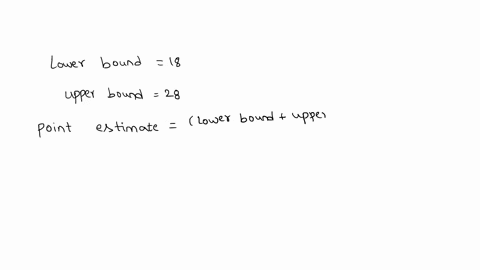 Lower bound = 18
upper bound = 28
point estimate = (lower bound + upper